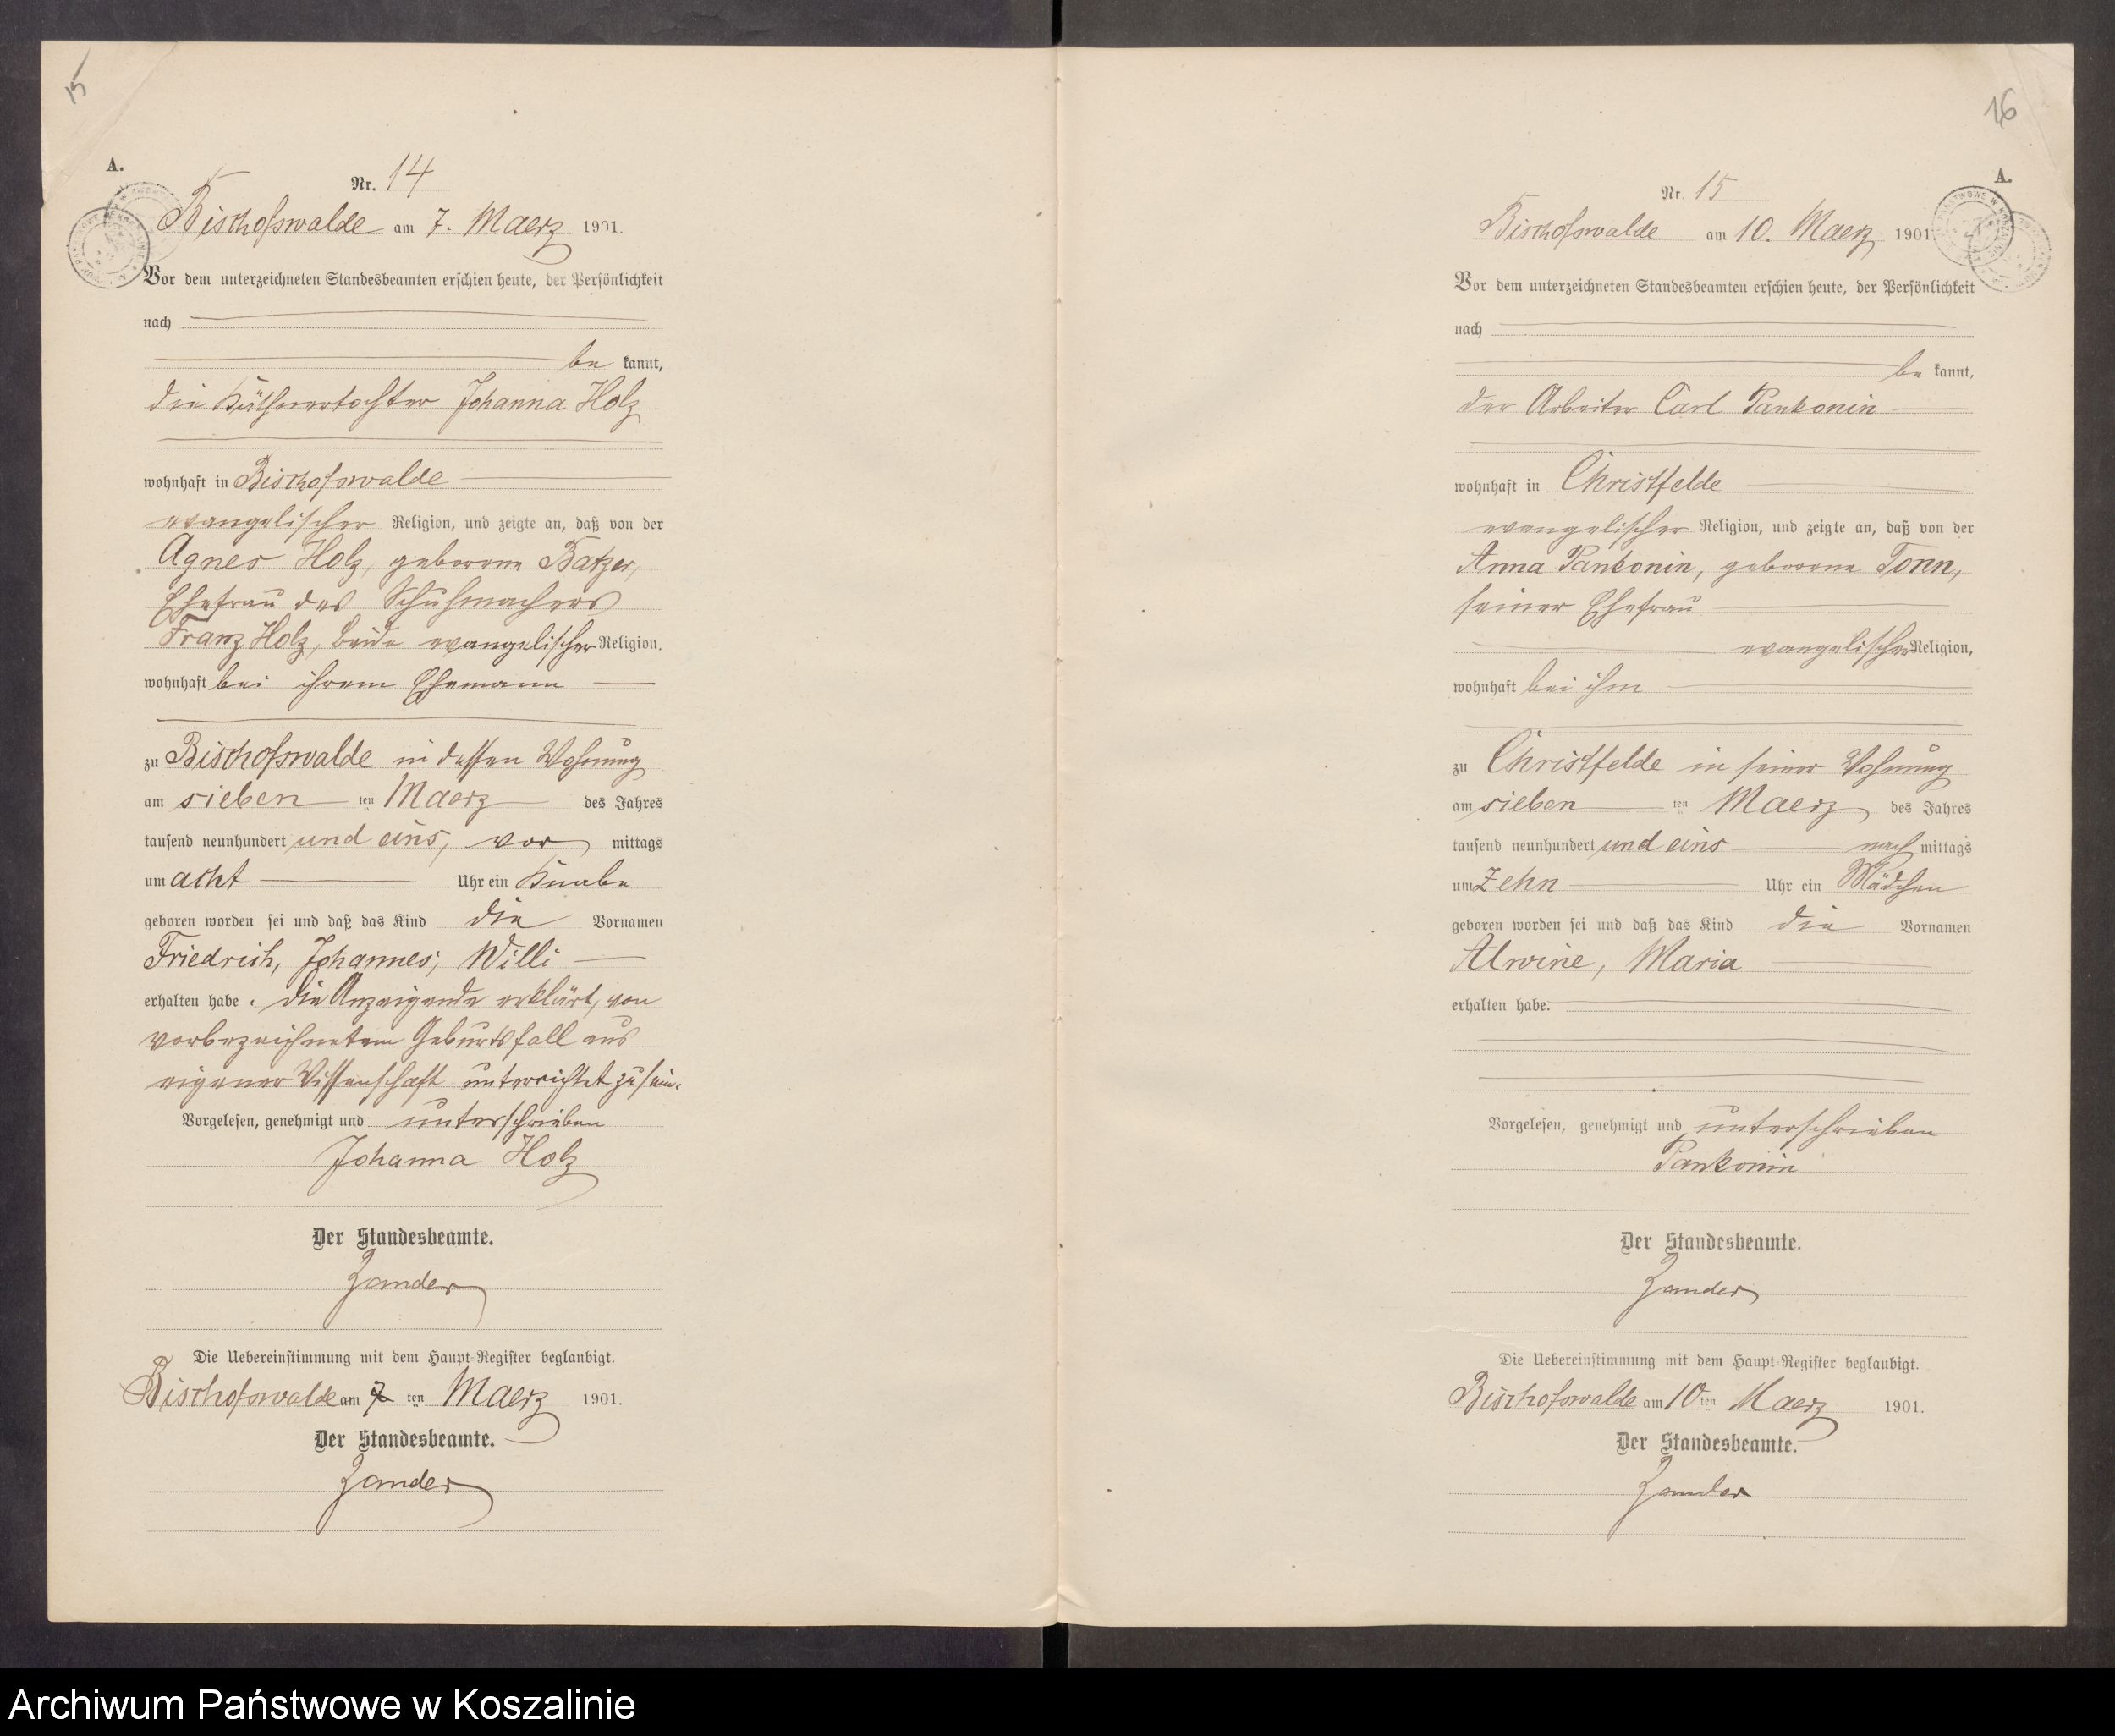 15
A.
Nr. 14
Bischofswalde am 7. Maerz 1901.
Vor dem unterzeichneten Standesbeamten erschien heute, der Persönlichkeit
nach
be kannt,
die Käthnertochter Johanna Holz
wohnhaft in Bischofswalde
evangelischer Religion, und zeigte an, daß von der
Agnes Holz, geborene Batzer,
Ehefrau des Schuhmachers
Franz Holz, beide evangelischer Religion,
wohnhaft bei ihrem Ehemann
zu Bischofswalde in dessen Wohnung
am sieben ten Maerz des Jahres
tausend neunhundert und eins, vor mittags
um acht Uhr ein Knabe
geboren worden sei und daß das Kind die Vornamen
Friedrich, Johannes, Willi
erhalten habe. Die Anzeigende erklärt, von
vorbezeichnetem Geburtsfall aus
eigener Wissenschaft unterrichtet zu sein.
Vorgelesen, genehmigt und unterschrieben
Johanna Holz
Der Standesbeamte.
Zander
Die Uebereinstimmung mit dem Haupt-Register beglaubigt.
Bischofswalde am 7 ten Maerz 1901.
Der Standesbeamte.
Zander
16
A.
Nr. 15
Bischofswalde am 10. Maerz 1901
Vor dem unterzeichneten Standesbeamten erschien heute, der Persönlichkeit
nach
be kannt,
der Arbeiter Carl Pankonin
wohnhaft in Christfelde
evangelischer Religion, und zeigte an, daß von der
Anna Pankonin, geborene Tonn,
seiner Ehefrau
evangelischer Religion,
wohnhaft bei ihm
zu Christfelde in seiner Wohnung
am sieben ten Maerz des Jahres
tausend neunhundert und eins nach mittags
um Zehn Uhr ein Mädchen
geboren worden sei und daß das Kind die Vornamen
Alwine, Maria
erhalten habe.
Vorgelesen, genehmigt und unterschrieben
Pankonin
Der Standesbeamte.
Zander
Die Uebereinstimmung mit dem Haupt-Register beglaubigt.
Bischofswalde am 10 ten Maerz 1901.
Der Standesbeamte.
Zander
Archiwum Państwowe w Koszalinie